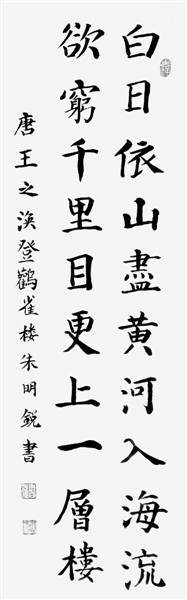 白日依山盡黃河入海流
欲窮千里目更上一層樓
唐王之渙登鸛雀楼朱明銳書